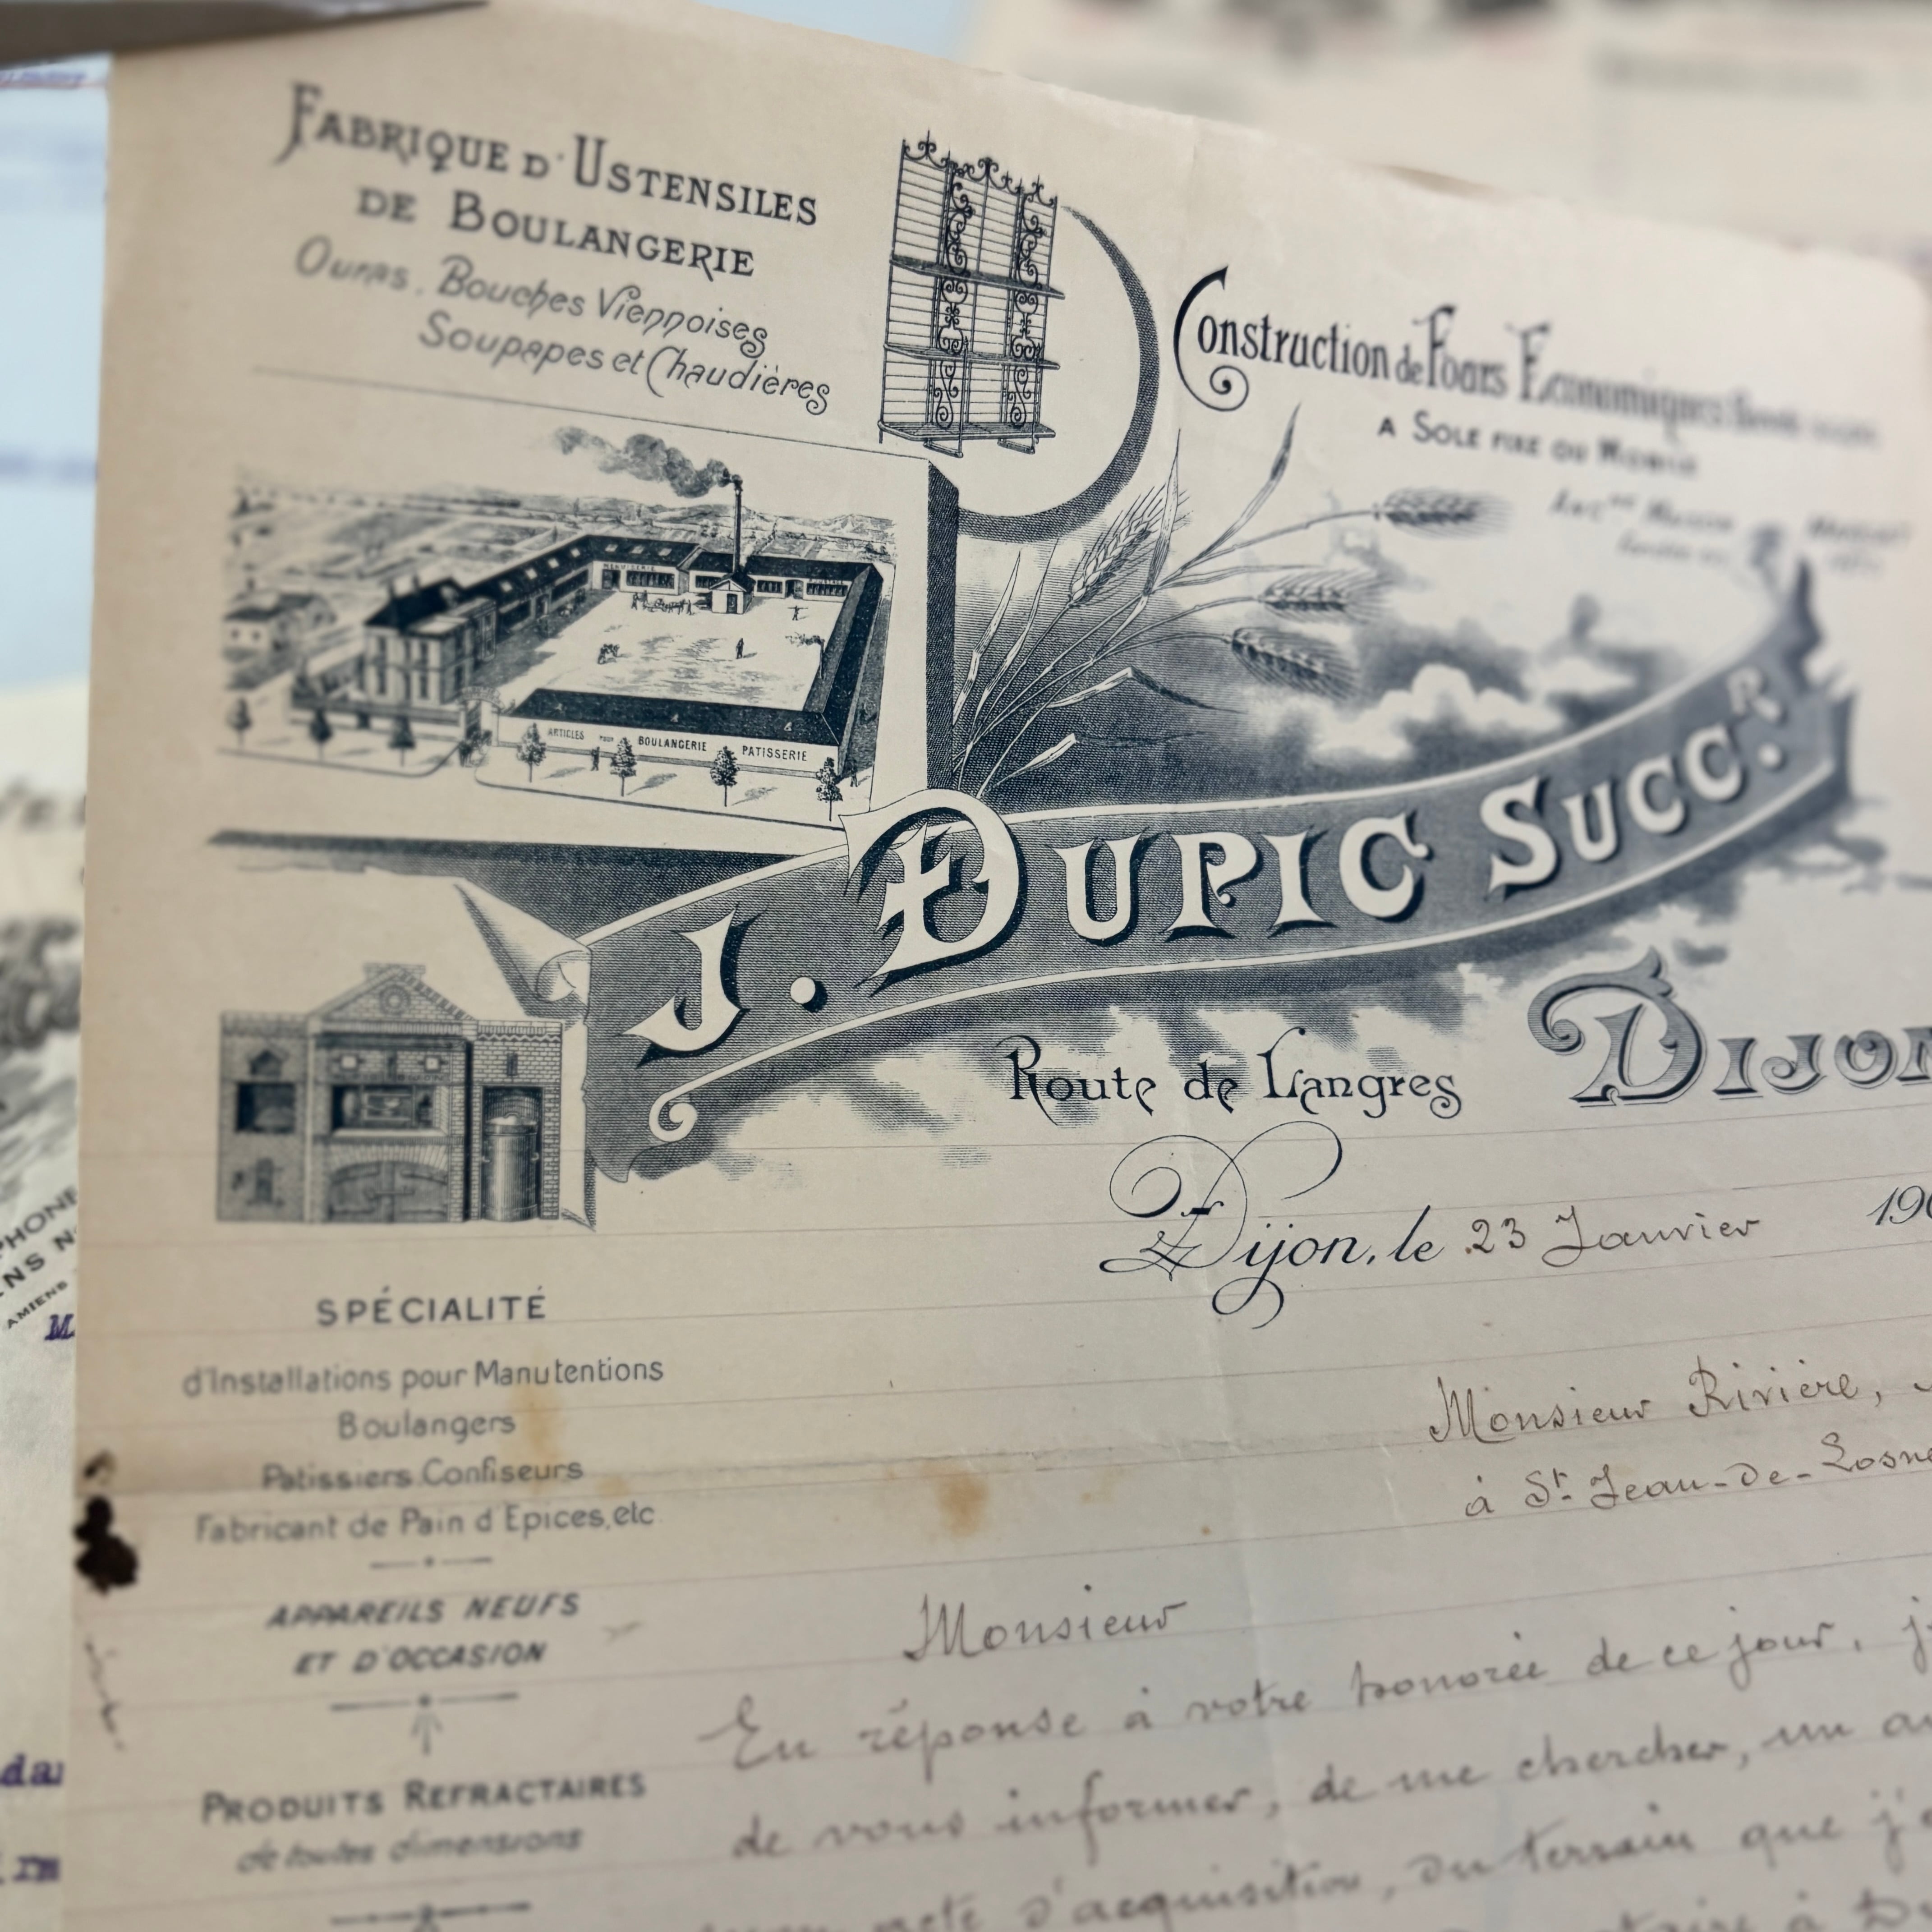 FABRIQUE D'USTENSILES
DE BOULANGERIE
Ouras. Bouches Viennoises
Soupapes et Chaudières
Construction de Fours Economiques
A SOLE FIXE OU MOBILE
MENUISERIE
ARTICLES POUR BOULANGERIE PATISSERIE
J. DUPIC SUCCR.
Route de Langres DIJON
Dijon, le 23 Janvier 190
SPÉCIALITÉ
d'Installations pour Manutentions
Boulangers
Patissiers.Confiseurs
Fabricant de Pain d'Epices,etc
APPAREILS NEUFS
ET D'OCCASION
PRODUITS REFRACTAIRES
de toutes dimensions
Monsieur Rivière,
à St. Jean-de-Losne
Monsieur
En réponse à votre honorée de ce jour, j
de vous informer, de me chercher, un
acte d'acquisition, du terrain que j'
à
PHONE
ENS N
AMIENS
M
da